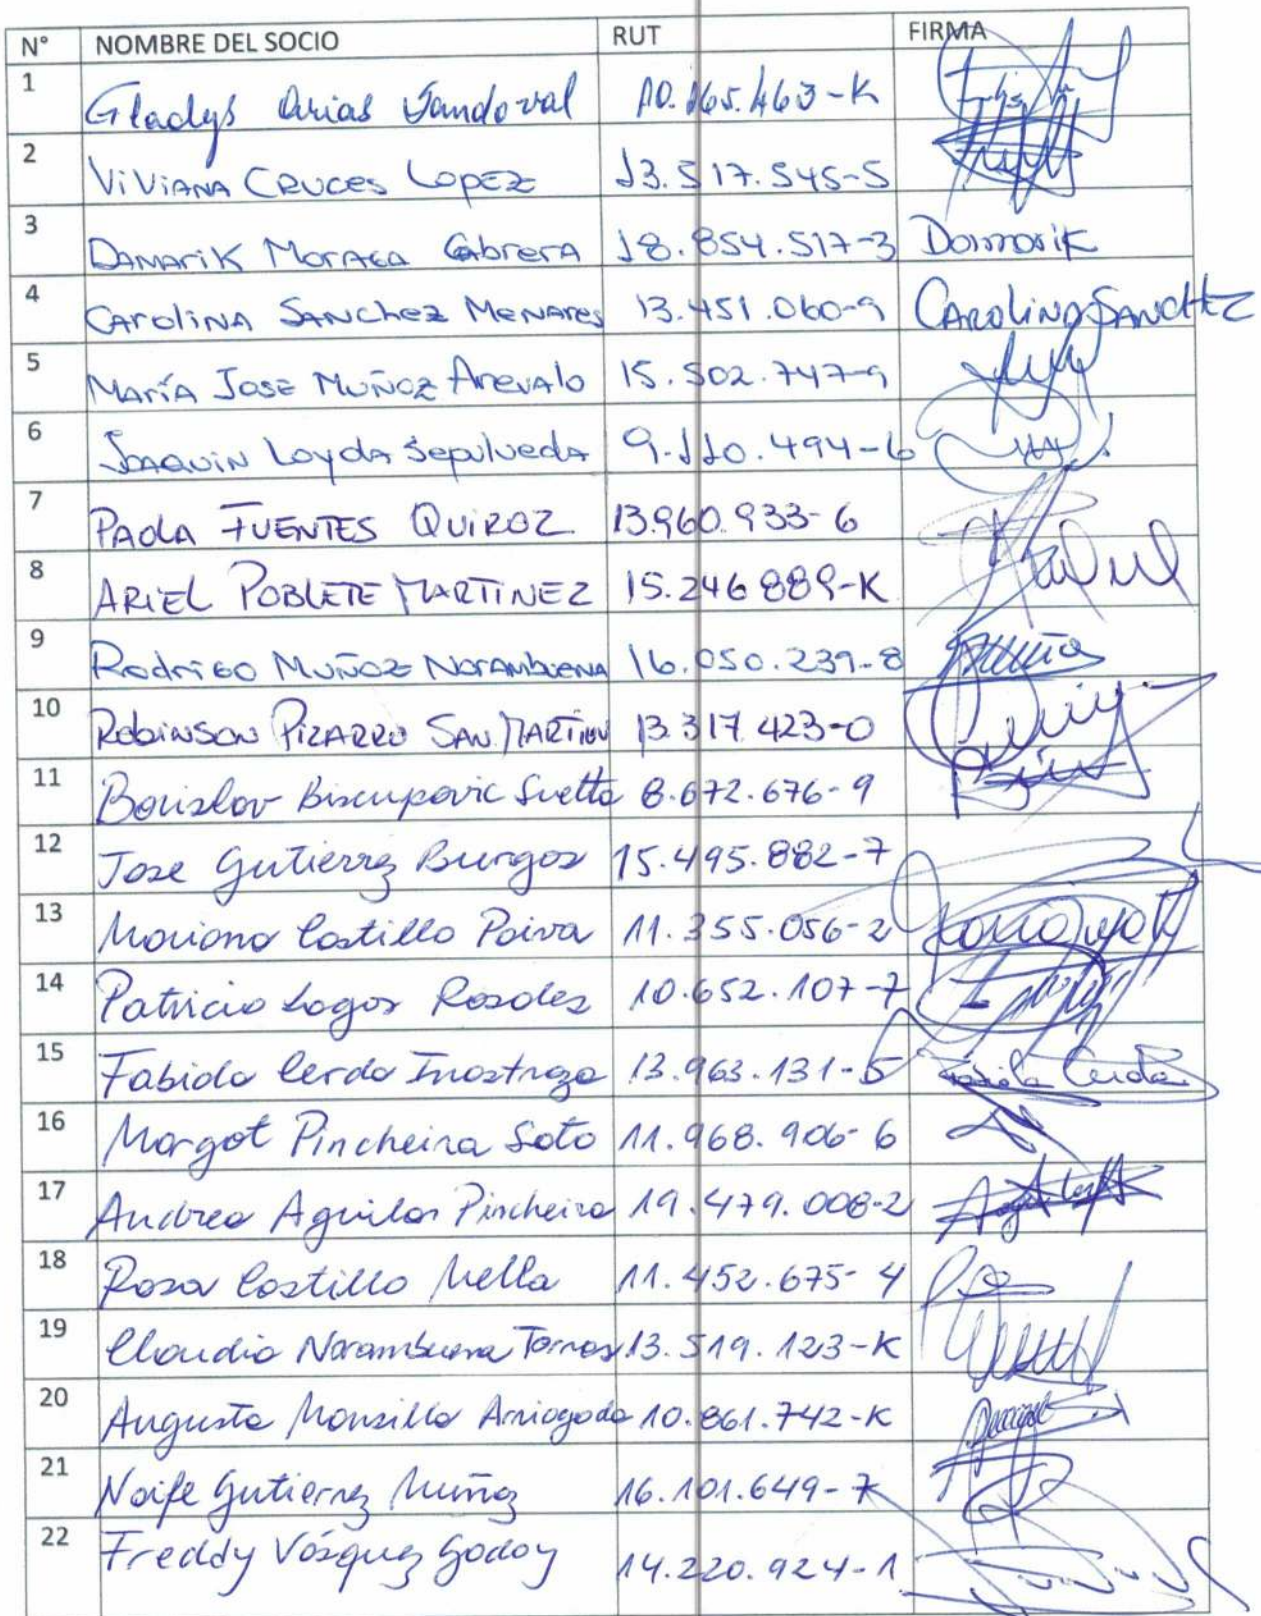 N° NOMBRE DEL SOCIO RUT FIRMA
1 Gladys Arias Sandoval 10.165.463-K
2 ViViANA CRUCES LOPEZ 13.517.545-5
3 DAMARIK MORAGA CABRERA 18.854.517-3 Damarik
4 CAROLINA SANCHEZ MENARES 13.451.060-9 CAROLINA SANCHEZ
5 MARÍA JOSE MUÑOZ AREVALO 15.502.747-9
6 JOAQUIN Loyola Sepulveda 9.110.494-6
7 PAOLA FUENTES QUIROZ 13.960.933-6
8 ARIEL POBLETE MARTINEZ 15.246.889-K
9 Rodrigo MUÑOZ NORAMBUENA 16.050.239-8
10 ROBINSON PIZARRO SAN MARTIN 13.317.423-0
11 Borislav Biscupovic 8.672.676-9
12 Jose Gutierrez Burgos 15.495.882-7
13 Mariano Castillo Paiva 11.355.056-2
14 Patricio Lagos Rosales 10.652.107-7
15 Fabiola Cerda Inostroza 13.963.131-5 Fabiola Cerda
16 Margot Pincheira Soto 11.968.906-6
17 Andrea Aguilar Pincheira 19.479.008-2
18 Rosa Castillo Mella 11.452.675-4
19 Claudio Norambuena Torres 13.519.123-K
20 Augusto Mansilla Arriagada 10.861.742-K
21 Naife Gutierrez Muñoz 16.101.649-7
22 Freddy Vásquez Godoy 14.220.924-1